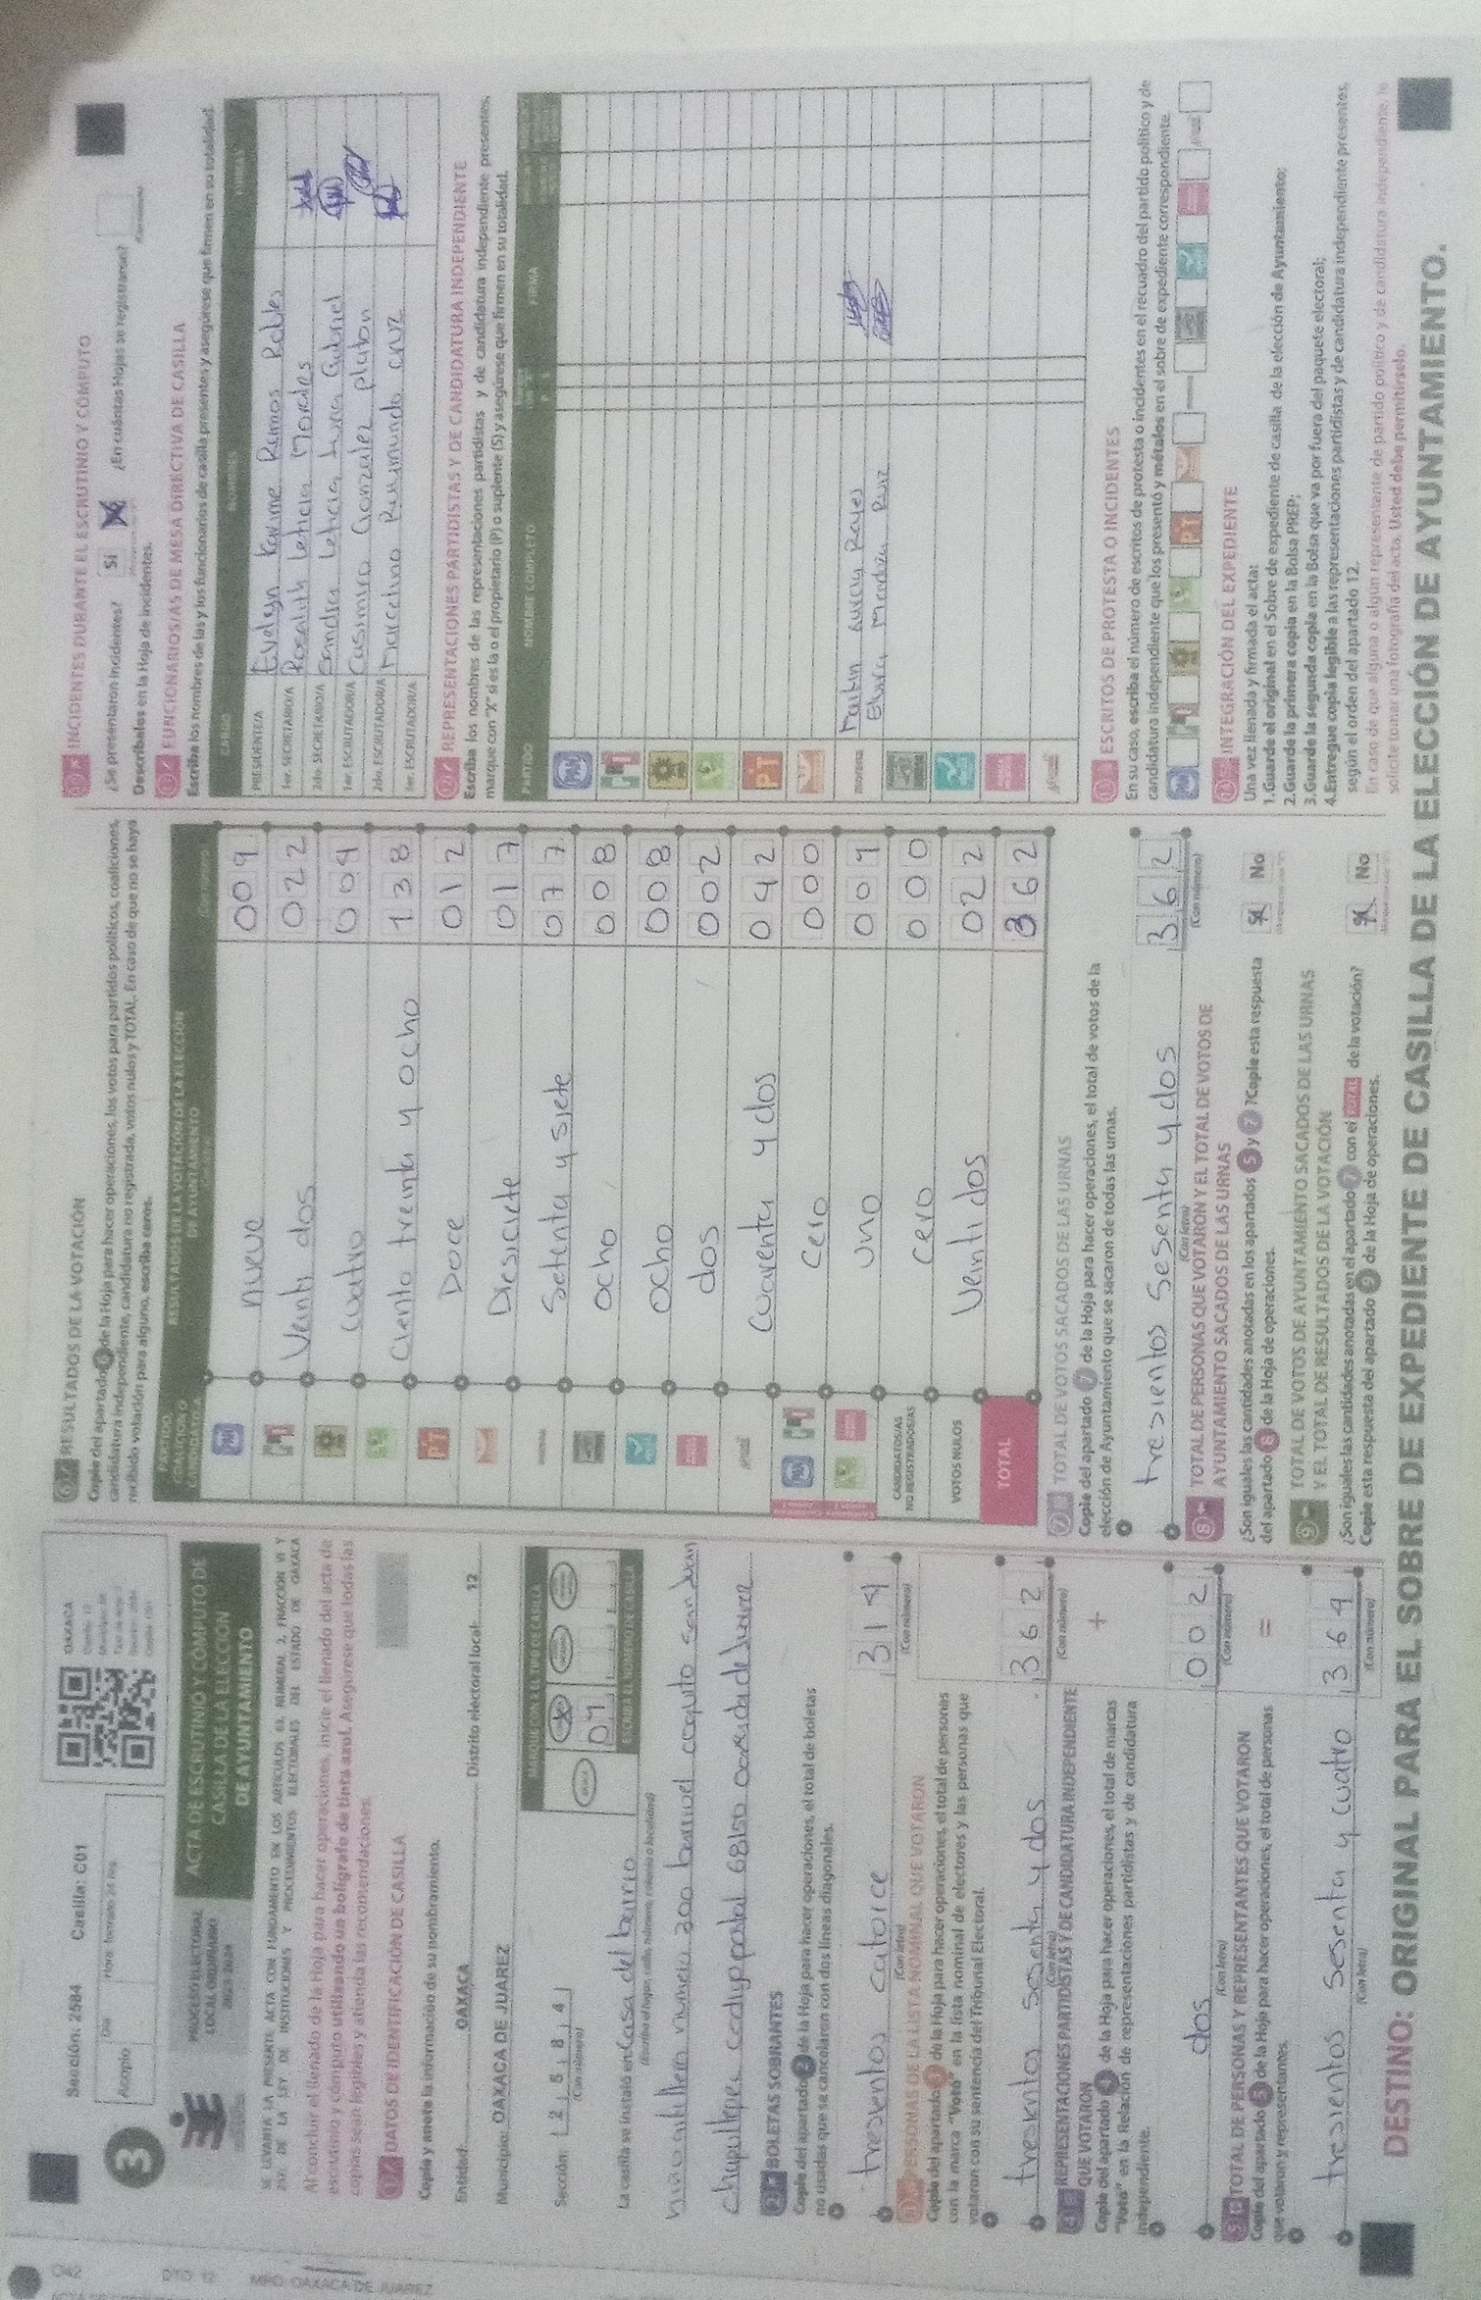 Sección: 2584 Casilla: C01
3
Acopio
Día
Hora: formato 24 hrs.
OAXACA
PROCESO ELECTORAL
LOCAL ORDINARIO
2023-2024
ACTA DE ESCRUTINIO Y CÓMPUTO DE
CASILLA DE LA ELECCIÓN
DE AYUNTAMIENTO
Al concluir el llenado de la Hoja para hacer operaciones, inicie el llenado del acta de
escrutinio y cómputo utilizando un bolígrafo de tinta azul. Asegúrese que todas las
copias sean legibles y atienda las recomendaciones.
1 DATOS DE IDENTIFICACIÓN DE CASILLA
Copie y anote la información de su nombramiento.
Entidad: OAXACA Distrito electoral local: 12
Municipio: OAXACA DE JUAREZ
Sección: 2 5 8 4
(Con número)
MARQUE CON X EL TIPO DE CASILLA
01
ESCRIBA EL NÚMERO DE CASILLA
La casilla se instaló en: Casa del barrio
(Escriba el lugar, calle, número, colonia o localidad)
niño artillero numero 200 barrio el coquito san Juan
chapultepec codigo postal 68150 oaxaca de Juarez
2 BOLETAS SOBRANTES
Copie del apartado 2 de la Hoja para hacer operaciones, el total de boletas
no usadas que se cancelaron con dos líneas diagonales.
trescientos catorce 314
(Con letra) (Con número)
3 PERSONAS DE LA LISTA NOMINAL QUE VOTARON
Copie del apartado 3 de la Hoja para hacer operaciones, el total de personas
con la marca "Votó" en la lista nominal de electores y las personas que
votaron con su sentencia del Tribunal Electoral.
trescientos sesenta y dos 362
(Con letra) (Con número)
4 REPRESENTACIONES PARTIDISTAS Y DE CANDIDATURA INDEPENDIENTE
QUE VOTARON
+
Copie del apartado 4 de la Hoja para hacer operaciones, el total de marcas
"Votó" en la Relación de representaciones partidistas y de candidatura
independiente.
dos 002
(Con letra) (Con número)
5 TOTAL DE PERSONAS Y REPRESENTANTES QUE VOTARON
=
Copie del apartado 5 de la Hoja para hacer operaciones, el total de personas
que votaron y representantes.
tresientos sesenta y cuatro 364
(Con letra) (Con número)
6 RESULTADOS DE LA VOTACIÓN
Copie del apartado 6 de la Hoja para hacer operaciones, los votos para partidos políticos, coaliciones,
candidatura independiente, candidatura no registrada, votos nulos y TOTAL. En caso de que no se haya
recibido votación para alguno, escriba ceros.
PARTIDO
COALICIÓN O
CANDIDATURA
RESULTADOS DE LA VOTACIÓN DE LA ELECCIÓN
DE AYUNTAMIENTO
PAN nueve 009
PRI Veinti dos 022
cuatro 004
Ciento treinta y ocho 138
PT Doce 012
Diesiciete 017
morena Setenta y siete 077
ocho 008
ocho 008
dos 002
Cuaventa y dos 042
PAN PRI Cero 000
uno 001
CANDIDATOS/AS
NO REGISTRADOS/AS cero 000
VOTOS NULOS Veinti dos 022
TOTAL 362
7 TOTAL DE VOTOS SACADOS DE LAS URNAS
Copie del apartado 7 de la Hoja para hacer operaciones, el total de votos de la
elección de Ayuntamiento que se sacaron de todas las urnas.
tresientos Sesenta y dos 362
(Con letra) (Con número)
8 TOTAL DE PERSONAS QUE VOTARON Y EL TOTAL DE VOTOS DE
AYUNTAMIENTO SACADOS DE LAS URNAS
¿Son iguales las cantidades anotadas en los apartados 5 y 7 ?Copie esta respuesta
del apartado 8 de la Hoja de operaciones.
Sí No
9 TOTAL DE VOTOS DE AYUNTAMIENTO SACADOS DE LAS URNAS
Y EL TOTAL DE RESULTADOS DE LA VOTACIÓN
¿Son iguales las cantidades anotadas en el apartado 7 con el TOTAL de la votación?
Copie esta respuesta del apartado 9 de la Hoja de operaciones.
Sí No
10 INCIDENTES DURANTE EL ESCRUTINIO Y CÓMPUTO
¿Se presentaron incidentes? Sí ¿En cuántas Hojas se registraron?
Descríbalos en la Hoja de incidentes.
11 FUNCIONARIOS/AS DE MESA DIRECTIVA DE CASILLA
Escriba los nombres de las y los funcionarios de casilla presentes y asegúrese que firmen en su totalidad.
CARGO NOMBRES FIRMAS
PRESIDENTE/A Evelyn Karime Ramos Robles
1er. SECRETARIO/A Rosalith Leticia Morales
2do. SECRETARIO/A Sandra Leticia Luna Gabriel
1er. ESCRUTADOR/A Casimiro Gonzalez platon
2do. ESCRUTADOR/A Marcelino Raymundo cruz
3er. ESCRUTADOR/A
12 REPRESENTACIONES PARTIDISTAS Y DE CANDIDATURA INDEPENDIENTE
Escriba los nombres de las representaciones partidistas y de candidatura independiente presentes,
marque con "X" si es la o el propietario (P) o suplente (S) y asegúrese que firmen en su totalidad.
PARTIDO NOMBRE COMPLETO FIRMA
PAN
PRI
PT
morena
13 ESCRITOS DE PROTESTA O INCIDENTES
En su caso, escriba el número de escritos de protesta o incidentes en el recuadro del partido político y de
candidatura independiente que los presentó y métalos en el sobre de expediente correspondiente.
14 INTEGRACIÓN DEL EXPEDIENTE
Una vez llenada y firmada el acta:
1.Guarde el original en el Sobre de expediente de casilla de la elección de Ayuntamiento;
2.Guarde la primera copia en la Bolsa PREP;
3.Guarde la segunda copia en la Bolsa que va por fuera del paquete electoral;
4.Entregue copia legible a las representaciones partidistas y de candidatura independiente presentes,
según el orden del apartado 12.
En caso de que alguna o algún representante de partido político y de candidatura independiente, lo
solicite tomar una fotografía del acta. Usted debe permitírselo.
DESTINO: ORIGINAL PARA EL SOBRE DE EXPEDIENTE DE CASILLA DE LA ELECCIÓN DE AYUNTAMIENTO.